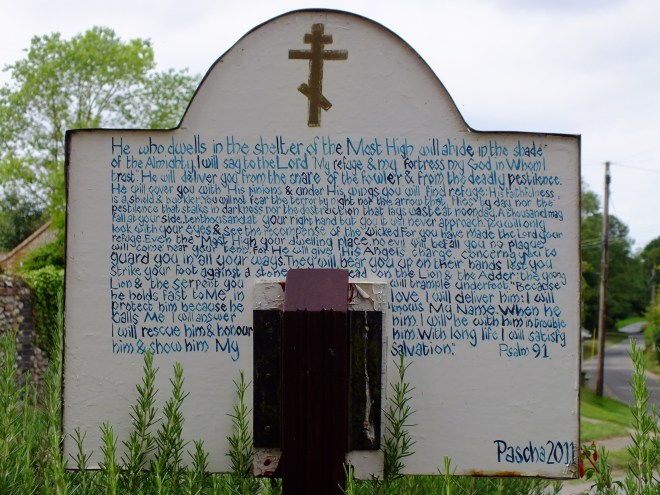 He who dwells in the shelter of the Most High will abide in the shade
of the Almighty. I will say to the Lord "My refuge & my fortress my God in Whom I
trust". He will deliver you from the snare of the fowler & from the deadly pestilence.
He will cover you with His Pinions & under His wings you will find refuge: His Faithfulness
is a shield & buckler. You will not fear the terror by night nor the arrow that flies by day nor the
pestilence that stalks in darkness nor the destruction that lays waste at noonday. A thousand may
fall at your side, ten thousand at your right hand but you it will never approach. You will only
look with your eyes & see the recompense of the wicked. For you have made the Lord your
refuge. Even the Most High your dwelling place, no evil will befall you no plague
will come near your tent. For He will give His Angels charge concerning you to
guard you in all your ways. They will bear you up on their hands lest you
strike your foot against a stone. tread on the Lion & the Adder the young
Lion & the serpent you will trample underfoot. "Because
he holds fast to Me in love I will deliver him: I will
protect him because he knows My Name. When he
calls Me I will answer him. I will be with him in trouble
I will rescue him & honour him. With long life I will satisfy
him & show him My Salvation." Psalm 91.
Pascha 2011